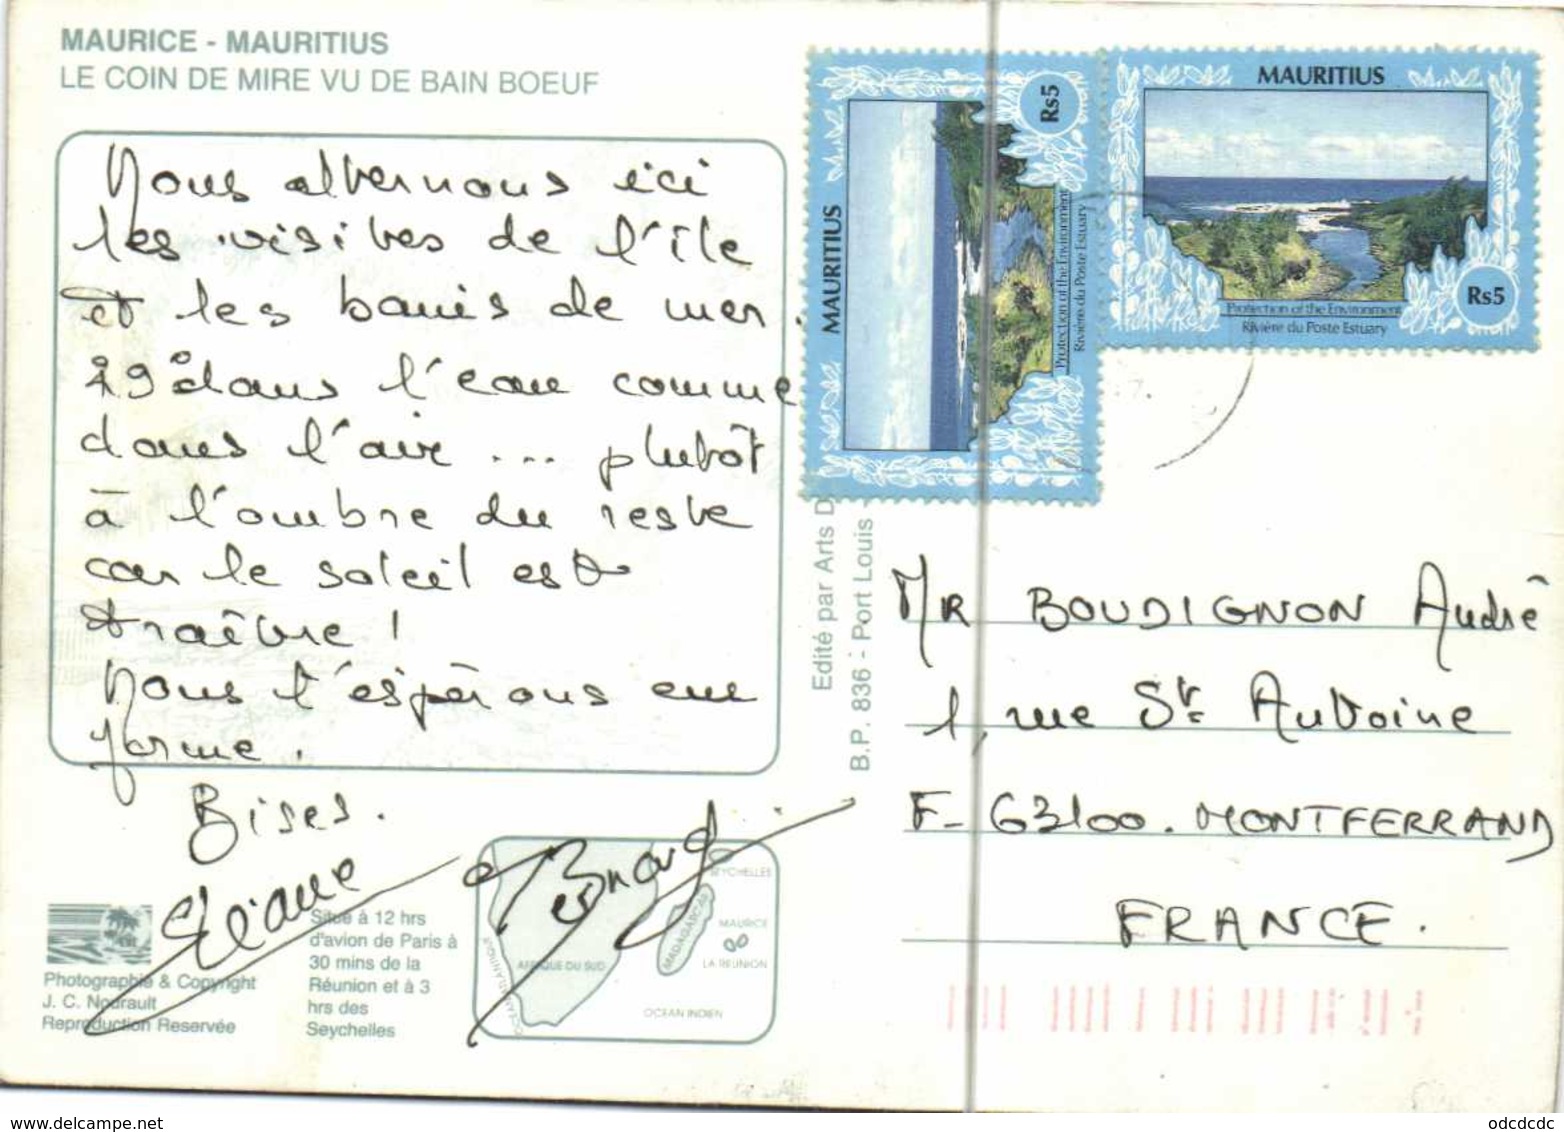 MAURICE - MAURITIUS
LE COIN DE MIRE VU DE BAIN BOEUF
Nous alternons ici
les visites de l'île
et les bains de mer.
29° dans l'eau comme
dans l'air ... plutôt
à l'ombre du reste
car le soleil est
traître !
Nous t'espérons en
forme.
Bises.
Eliane
Bernard
Photographie & Copyright
J. C. Nourault
Reproduction Reservée
Situé à 12 hrs
d'avion de Paris à
30 mins de la
Réunion et à 3
hrs des
Seychelles
SEYCHELLES
MADAGASCAR
MAURICE
LA REUNION
AFRIQUE DU SUD
OCEAN INDIEN
Edité par Arts
B.P. 836 - Port Louis
MAURITIUS
Rs5
Protection of the Environment
Rivière du Poste Estuary
MAURITIUS
Protection of the Environment
Rivière du Poste Estuary
Rs5
MR BOUDIGNON André
1, rue St Antoine
F-63100. MONTFERRAND
FRANCE.
odcdcdc